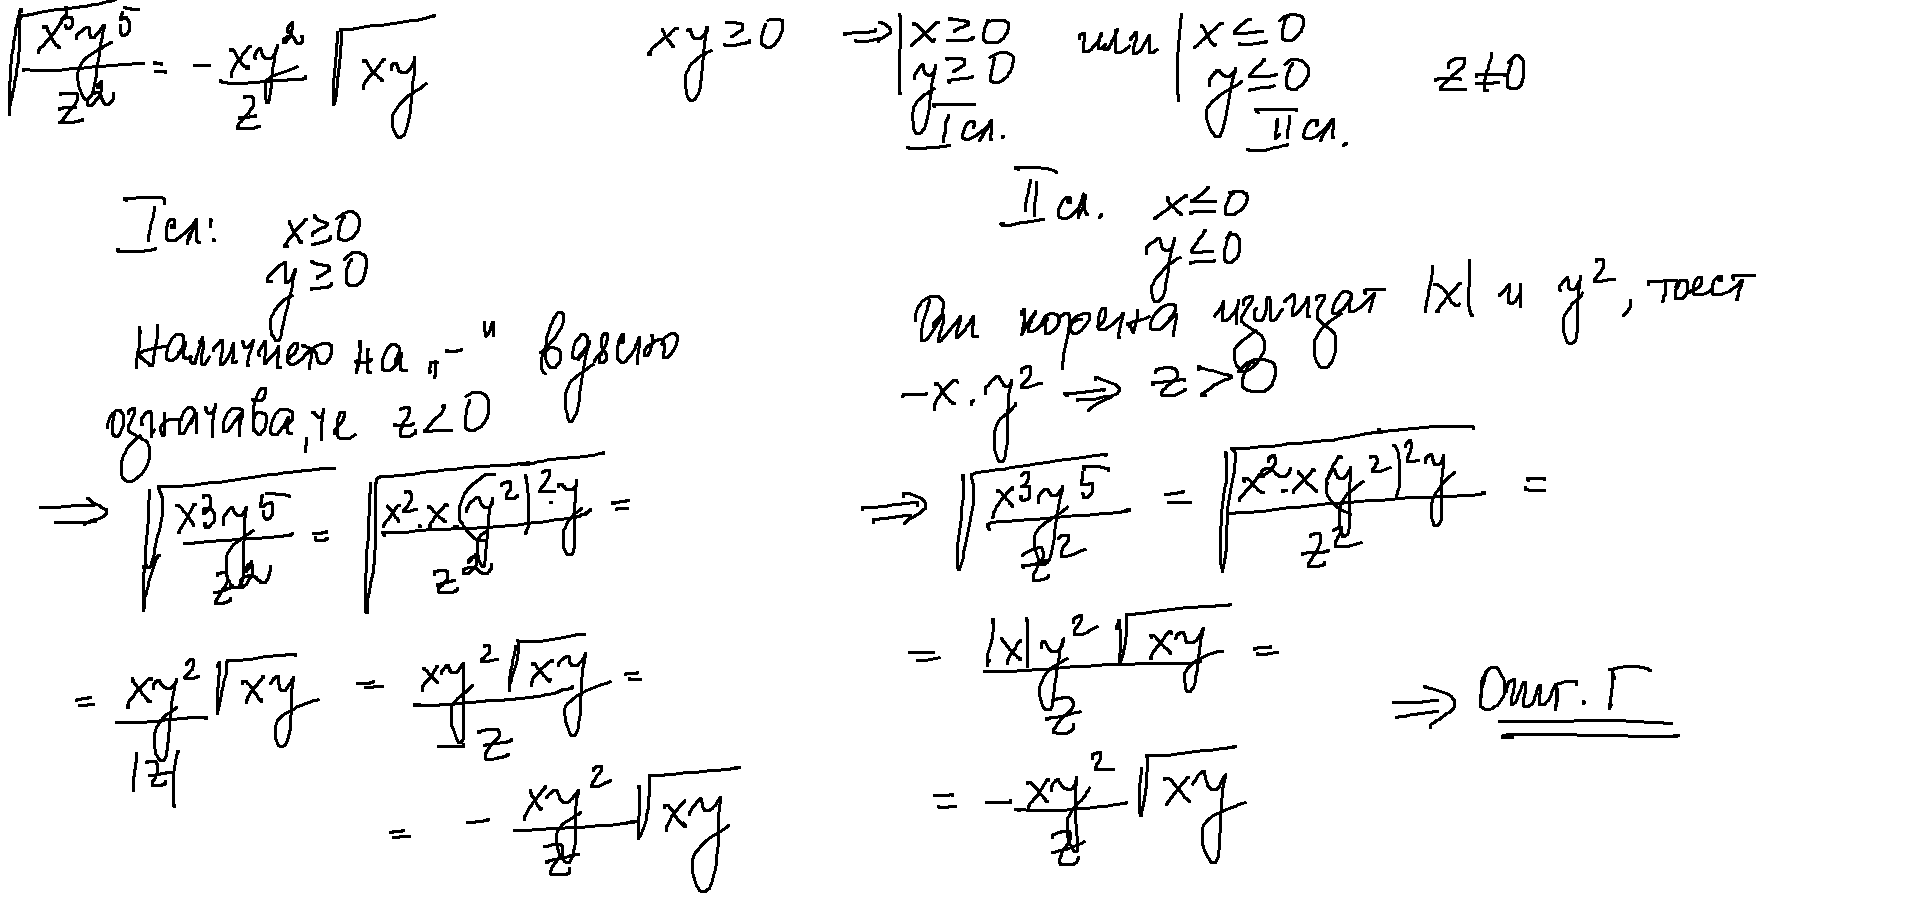 √(x³y⁵/z²) = - xy²/z √xy   xy ≥ 0 ⇒ | x ≥ 0 y ≥ 0 или | x ≤ 0 y ≤ 0   z ≠ 0
I сл.   II сл.
I сл: x ≥ 0
y ≥ 0
Наличието на „-“ вдясно
означава, че z < 0
⇒ √(x³y⁵/z²) = √(x².x.(y²)².y/z²) =
= xy²/|z| √xy = xy²√xy/-z =
= - xy²/z √xy
II сл. x ≤ 0
y ≤ 0
От корена излизат |x| и y², тоест
-x.y² ⇒ z > 0
⇒ √(x³y⁵/z²) = √(x².x(y²)²y/z²) =
= |x|y²√xy/z =
= - xy²/z √xy
⇒ Отг. Г